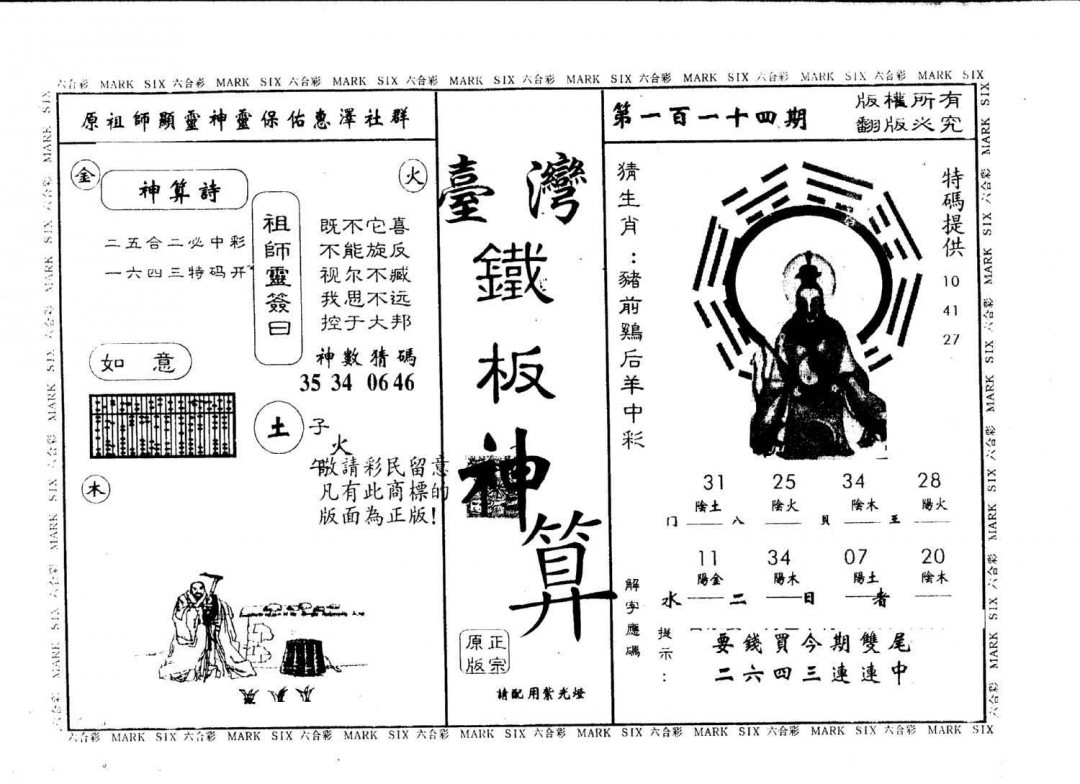 六合彩 MARK SIX 六合彩 MARK SIX 六合彩 MARK SIX 六合彩 MARK SIX 六合彩 MARK SIX 六合彩 MARK SIX 六合彩 MARK SIX 六合彩 MARK SIX
原祖師顯靈神靈保佑惠澤社群
金
火
神算詩
二五合二必中彩
一六四三特码开
祖師靈簽曰
既不它喜
不能旋反
视尔不臧
我思不远
控于大邦
神數猜碼
35 34 06 46
如意
土
子
火
午
敬請彩民留意
凡有此商標的
版面為正版!
木
臺灣
鐵
板
神
算
正宗
原版
請配用紫光燈
第一百一十四期
版權所有
翻版必究
猜生肖:豬前鷄后羊中彩
特碼提供
10
41
27
31 25 34 28
陰土 陰火 陰木 陽火
门 八 贝 王
11 34 07 20
陽金 陽木 陽土 陰木
水 二 日 者
解字應碼
提示:
要錢買今期雙尾
二六四三連連中
六合彩 MARK SIX 六合彩 MARK SIX 六合彩 MARK SIX 六合彩 MARK SIX 六合彩 MARK SIX 六合彩 MARK SIX 六合彩 MARK SIX 六合彩 MARK SIX